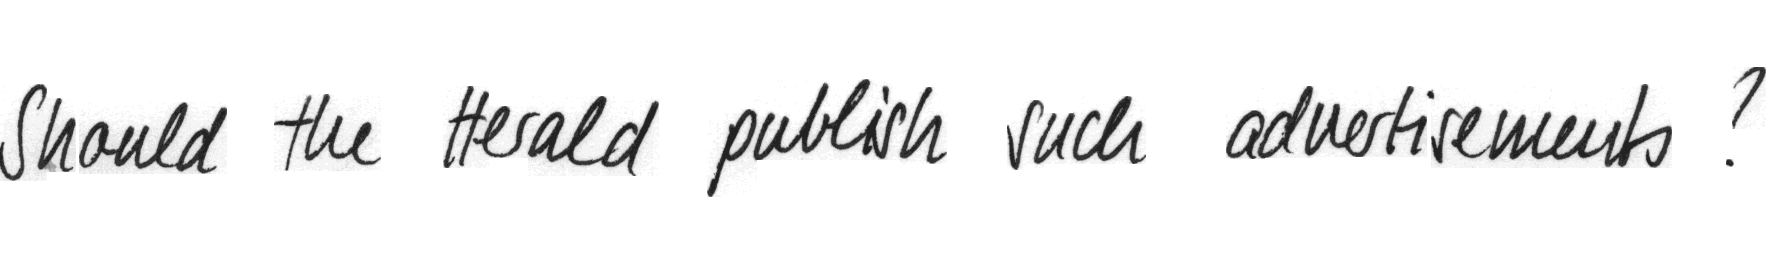 Should the Herald publish such advertisements ?